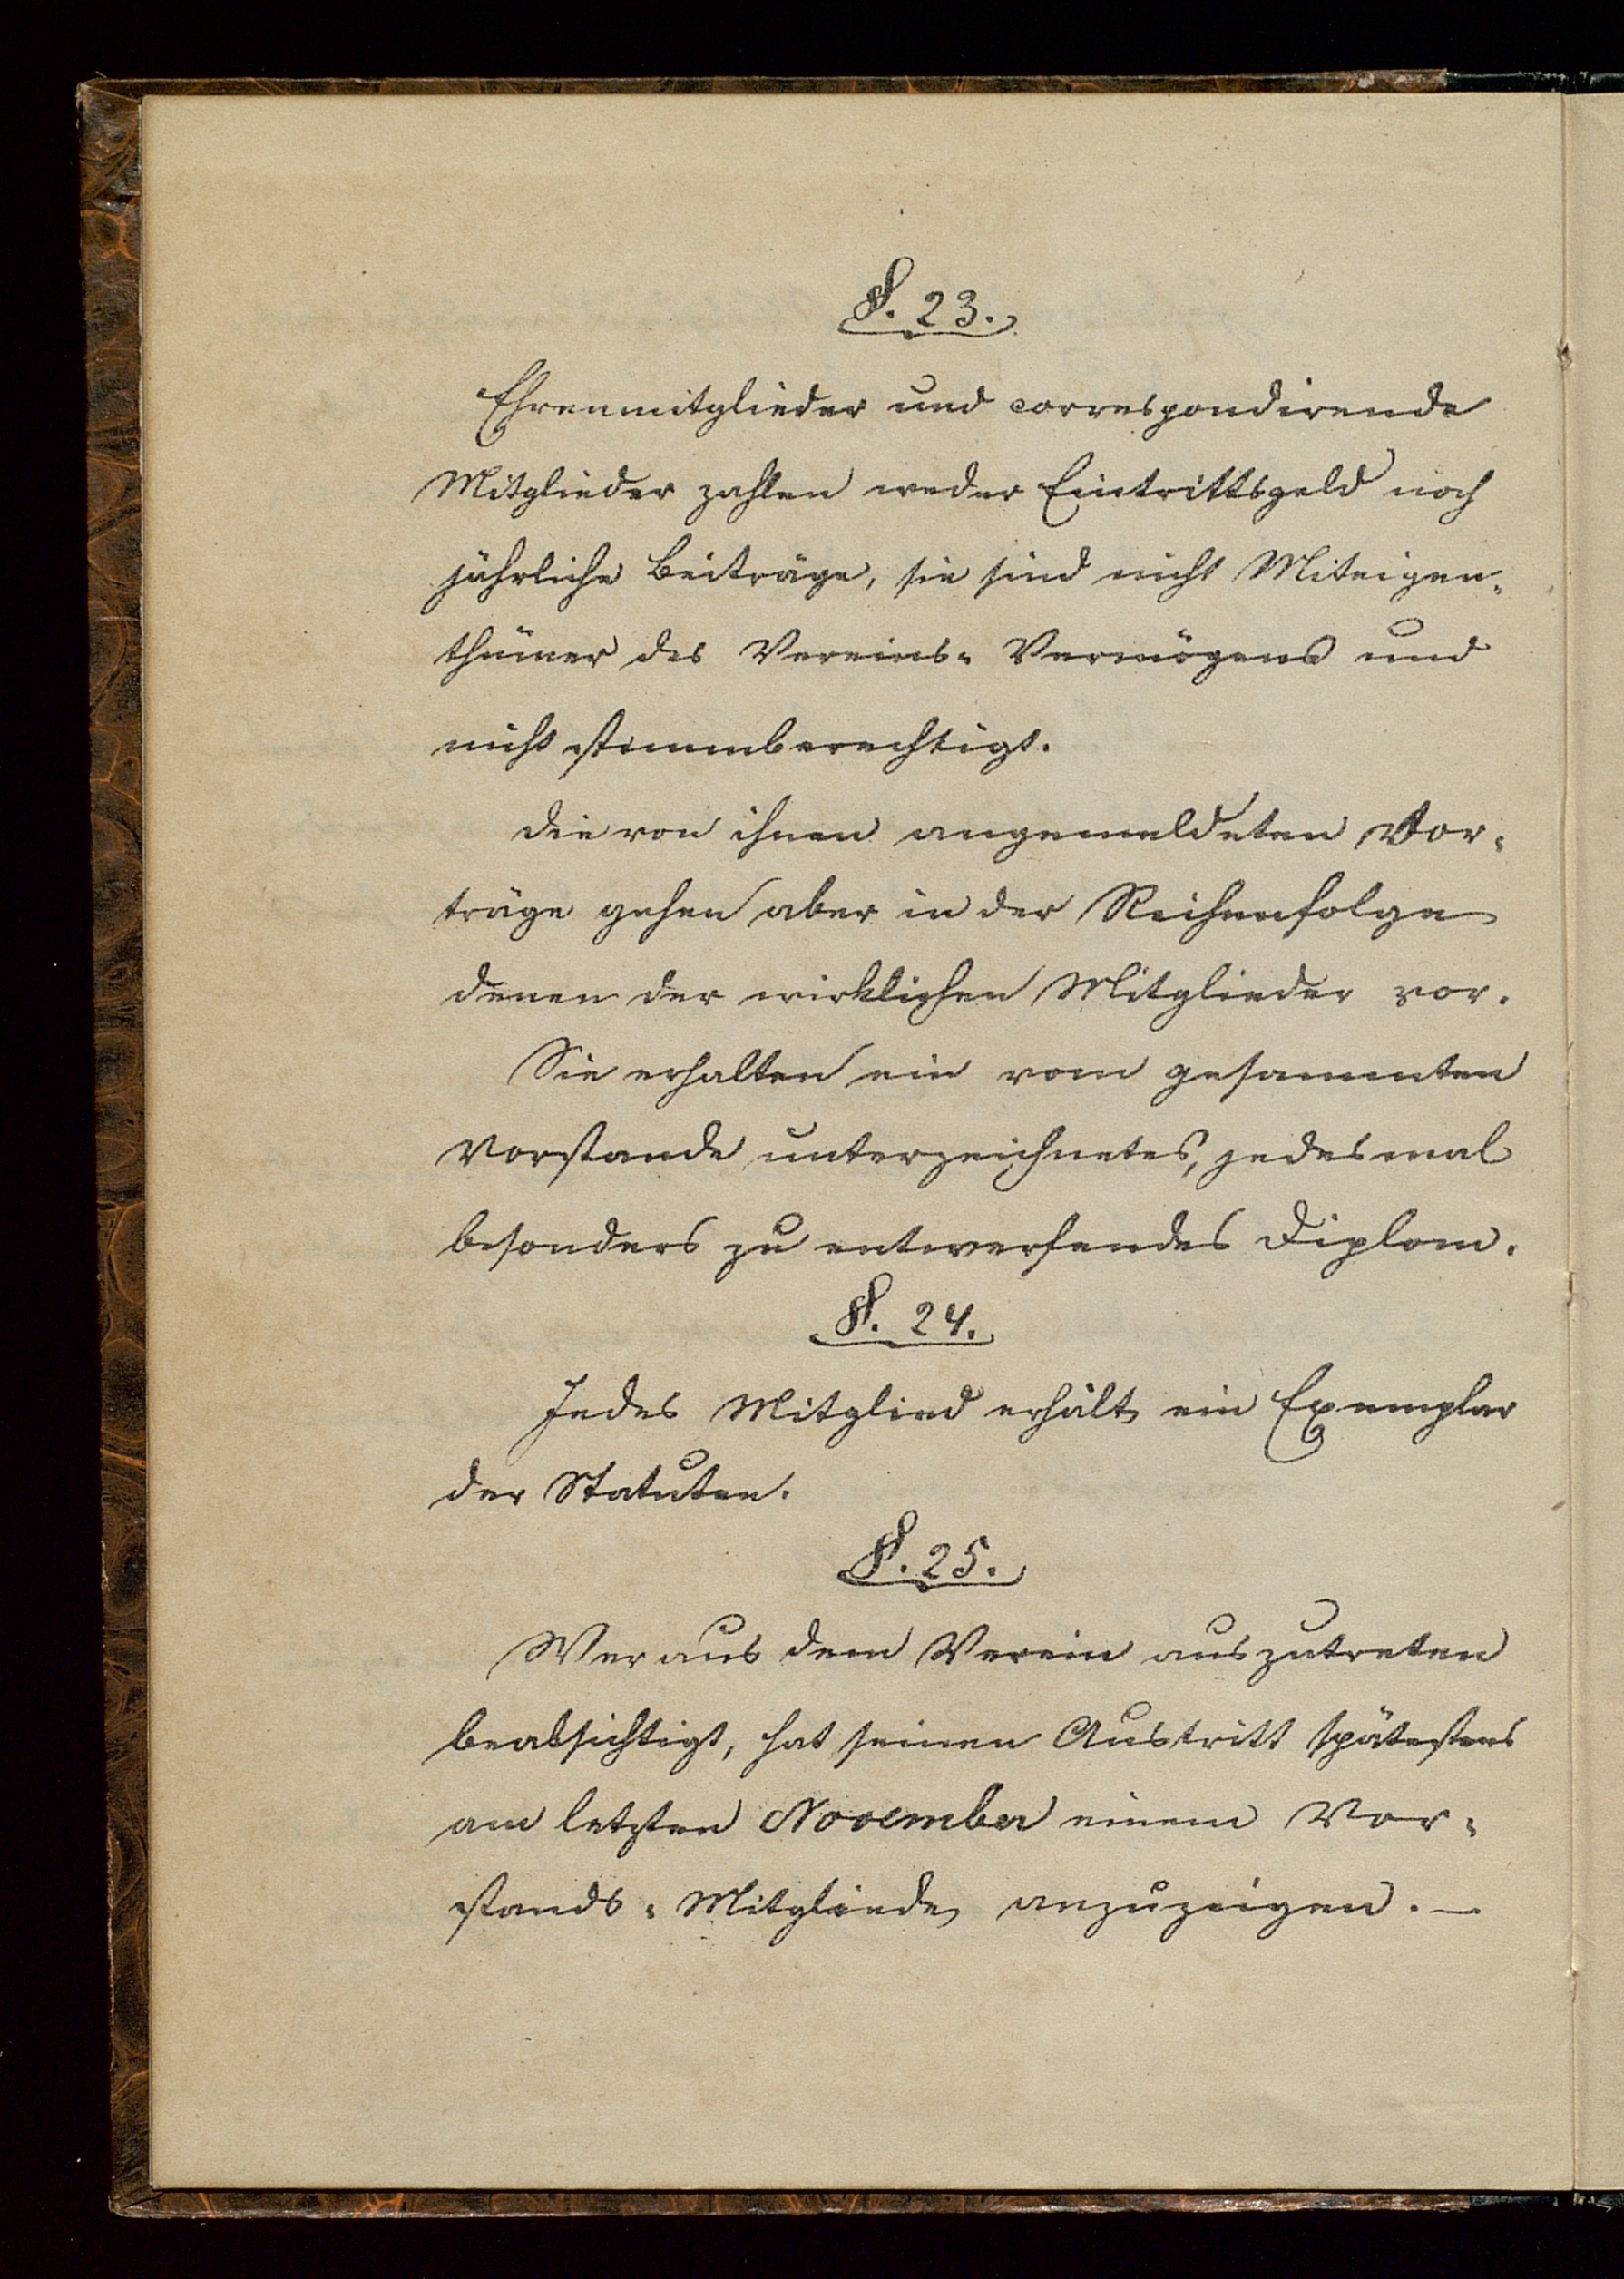 §. 23.
Ehrenmitglieder und correspondirende
Mitglieder zahlen weder Eintrittsgeld noch
jährliche Beiträge, sie sind nicht Miteigen-
thümer des Vereins-Vermögens und
nicht stimmberechtigt.
Die von ihnen angemeldeten Vor-
träge gehen aber in der Reihenfolge
denen der wirklichen Mitglieder vor.
Sie erhalten ein vom gesammten
Vorstande unterzeichnetes, jedesmal
besonders zu entwerfendes Diplom.
§. 24.
Jedes Mitglied erhält ein Exemplar
der Statuten.
§. 25.
Wer aus dem Verein auszutreten
beabsichtigt, hat seinen Austritt spätestens
am letzten November einem Vor-
stands-Mitgliede anzuzeigen. —